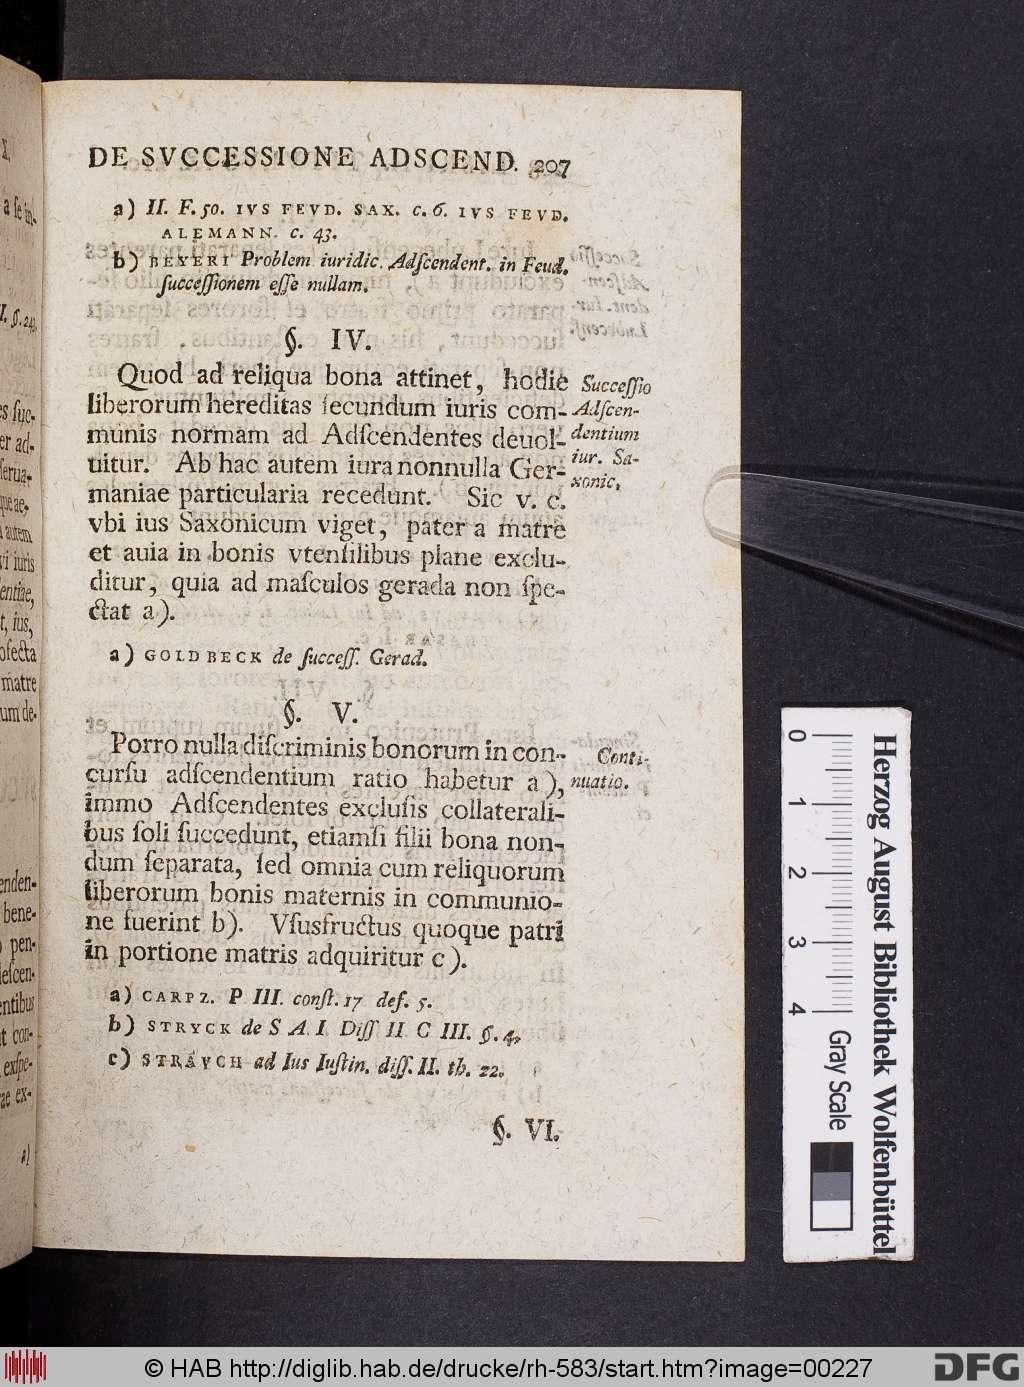 DE SVCCESSIONE ADSCEND. 207
a) II. F. 50. IVS FEVD. SAX. c. 6. IVS FEVD.
ALEMANN. c. 43.
b) BEYERI Problem iuridic. Adſcendent. in Feud.
ſucceſſionem eſſe nullam.
§. IV.
Quod ad reliqua bona attinet, hodie
liberorum hereditas ſecundum iuris com-
munis normam ad Adſcendentes deuol-
uitur. Ab hac autem iura nonnulla Ger-
maniae particularia recedunt. Sic v. c.
vbi ius Saxonicum viget, pater a matre
et auia in bonis vtenſilibus plane exclu-
ditur, quia ad maſculos gerada non ſpe-
ctat a).
Succeſſio
Adſcen-
dentium
iur. Sa-
xonic.
a) GOLDBECK de ſucceſſ. Gerad.
§. V.
Porro nulla diſcriminis bonorum in con-
curſu adſcendentium ratio habetur a),
immo Adſcendentes excluſis collaterali-
bus ſoli ſuccedunt, etiamſi filii bona non-
dum ſeparata, ſed omnia cum reliquorum
liberorum bonis maternis in communio-
ne fuerint b). Vſusfructus quoque patri
in portione matris adquiritur c).
Conti-
nuatio.
a) CARPZ. P III. conſt. 17 def. 5.
b) STRYCK de S A. I Diſſ II C III. §. 4.
c) STRAVCH ad Ius Iuſtin. diſſ. II. th. 22.
§. VI.
a ſe in-
I. §. 24.
es ſuc-
er ad-
ſerua-
que ae-
autem
vi iuris
entiae,
t, ius,
ofecta
matre
um de-
enden-
bene-
pen-
eſcen-
entibus
t con-
exſpe-
ae ex-
a)
0 1 2 3 4
Gray Scale
Herzog August Bibliothek Wolfenbüttel
© HAB http://diglib.hab.de/drucke/rh-583/start.htm?image=00227
DFG